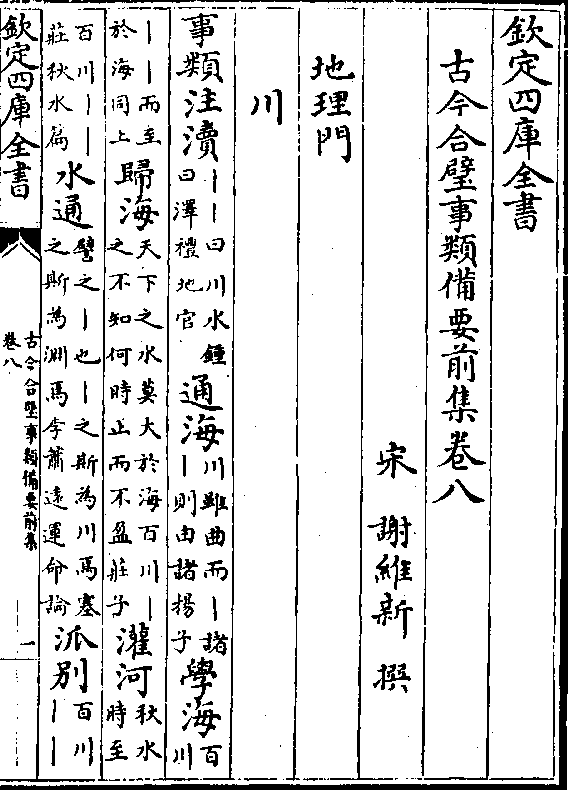 欽定四庫全書
古今合璧事類備要前集卷八
宋 謝維新 撰
地理門
川
事類注瀆丨丨曰川水鍾曰澤禮地官通海川雖曲而丨諸丨則由諸揚子學海百川
丨丨而至於海同上歸海天下之水莫大於海百川丨之不知何時止而不盈莊子灌河秋水時至
百川丨丨莊秋水篇水通譬之丨也丨之斯為川焉塞之斯為淵焉李蕭遠運命論派別百川丨丨
欽定四庫全書
古今合璧事類備要前集
卷八
一